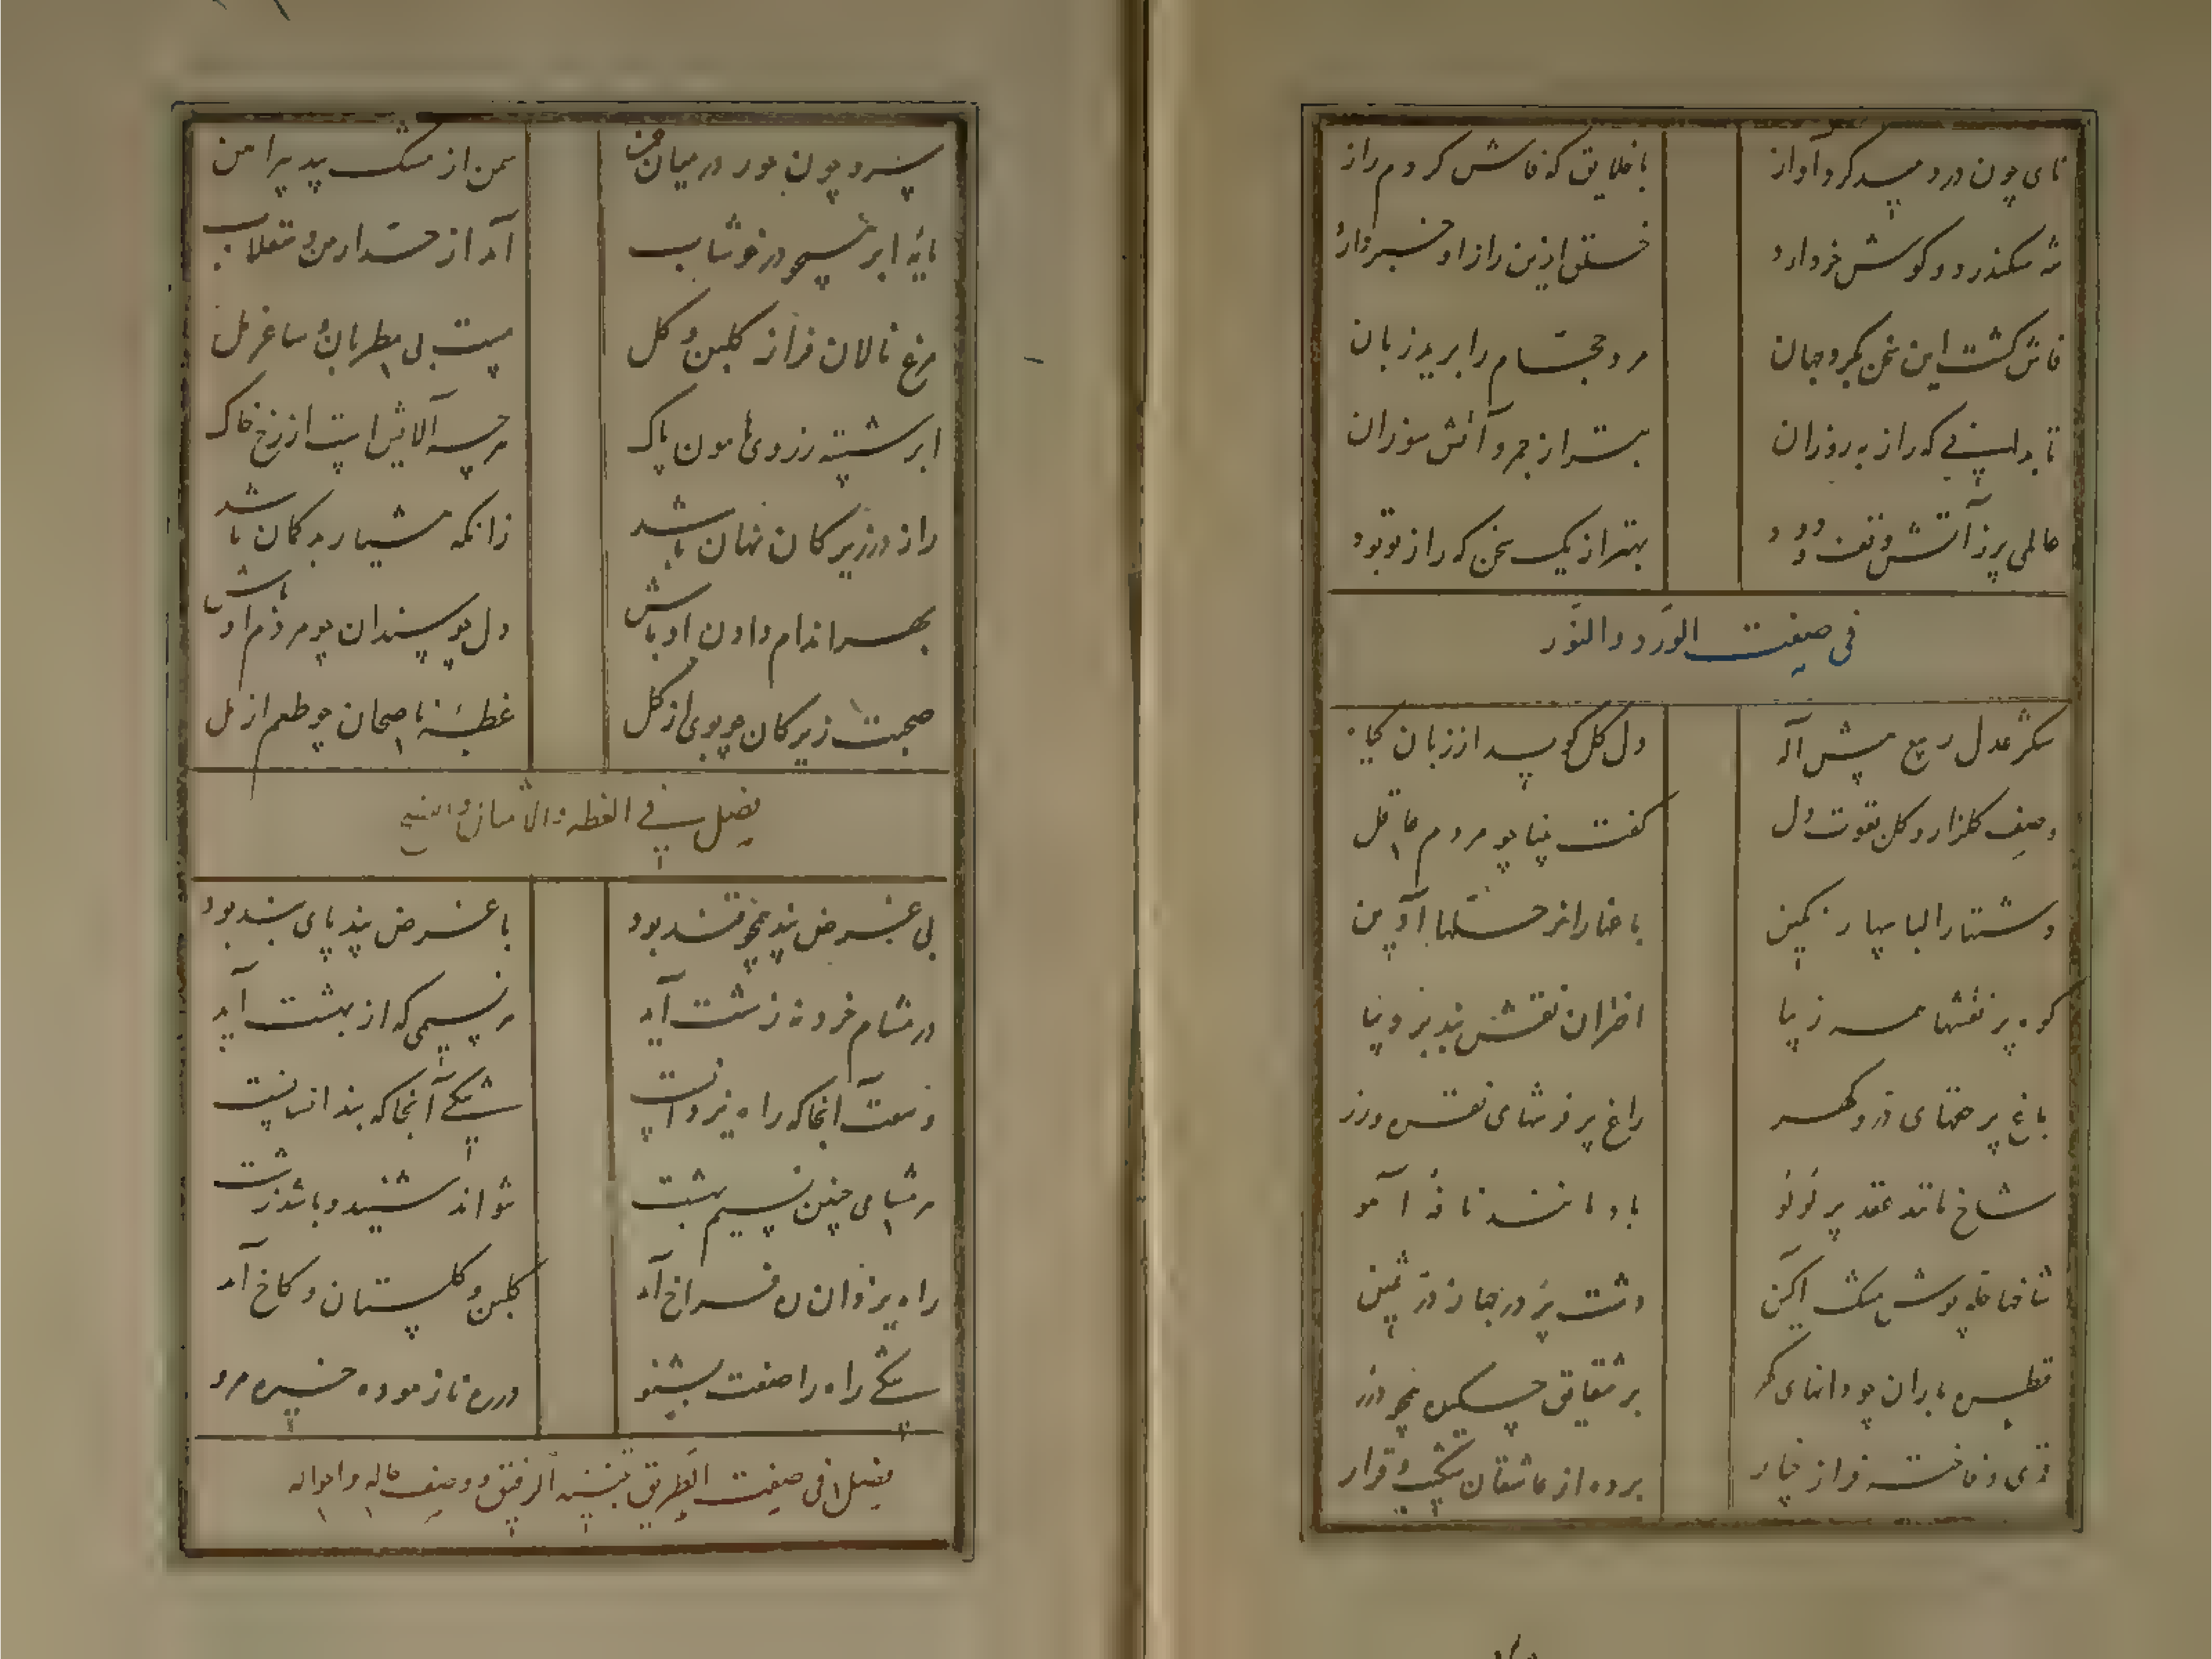 نای چون در دمید کرد آواز با خلایق که فاش کردم راز
شه سکندر دو گوش خر دارد خلق ازین راز او خبر دارد
فاش گشت این سخن بگرد جهان مرد حجام را برید زبان
تا بدانی که راز بهروزان بتر از جمر و آتش سوزان
عالمی پر ز آتش و تف و دود بهتر از یک سخن که راز تو بود
فی صفت الورد والنور
شکر عدل ربیع پیش اله دل گل گوید از زبان گیاه
وصف گلزار و گل بقوت دل گفت مینا چو مردم عاقل
دشتها را لباسها رنگین باغها را ز حلها آذین
کوه پر نقشها همه زیبا اختران نقش بند بر دیبا
باغ پر تختهای در و گهر راغ پر فرشهای نقره و زر
شاخ مانند عقد پر لؤلؤ باد مانند نافهٔ آهو
شاخها حله پوش مشک آگین دشت پر در جهان ز در ثمین
قطره باران چو دانهای گهر بر شقایق چکیده همچو درر
قمری و فاخته فراز چنار برده از عاشقان شکیب و قرار
سرو چون حور در میان چمن سمن از مشک بید پیرامن
مایهٔ ابر همچو در خوشاب
مرغ نالان فراز گلبن و گل مست بی مطربان و ساغر مل
ابر شسته ز روی هامون پاک هر چه آلایش است از رخ خاک
راز در زیرکان نهان باشد زانکه هشیار بدگمان باشد
بهر اندام دادن اوباش دل چو سندان چو مردم او باش
صحبت زیرکان چو بوی از گل عظهٔ ناصحان چو طعم از مل
فصل فی العظه والامثال والنصح
بی غرض پند همچو قند بود با غرض پند پای بند بود
در مشام خرد نه زشت آید هر نسیمی که از بهشت آید
وسعت آنجا که راه یزدانست تنگی آنجا که بند انسانست
هر مشامی چنین نسیم بهشت نتواند شنید و باشد زشت
راه یزدان ره فراخ آمد گلبن و گلستان و کاخ آمد
تنگی راه را صفت بشنو در ره نازموده خیره مرو
فصل فی صفت الطریق بنسبة الرفیق و وصف حاله واحواله